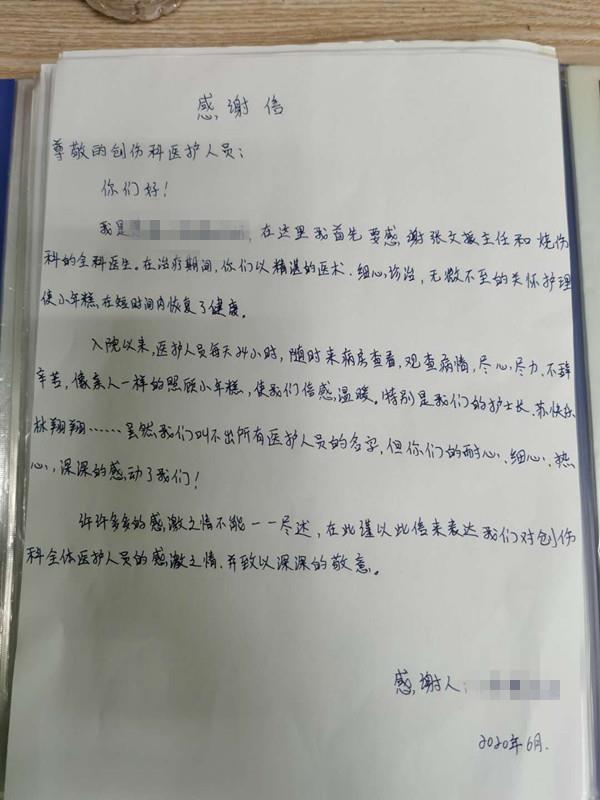 感谢信
尊敬的创伤科医护人员：
你们好！
我是，在这里我首先要感谢张文振主任和烧伤
科的全科医生。在治疗期间，你们以精湛的医术、细心诊治，无微不至的关怀护理
使小年糕在短时间内恢复了健康。
入院以来，医护人员每天24小时，随时来病房查看，观查病情，尽心尽力、不辞
辛苦，像亲人一样的照顾小年糕，使我们倍感温暖。特别是我们的护士长、苏快乐
林翔翔……虽然我们叫不出所有医护人员的名字，但你们的耐心、细心、热
心，深深的感动了我们！
许许多多的感激之情不能一一尽述，在此谨以此信来表达我们对创伤
科全体医护人员的感激之情、并致以深深的敬意。
感谢人：
2020年6月.